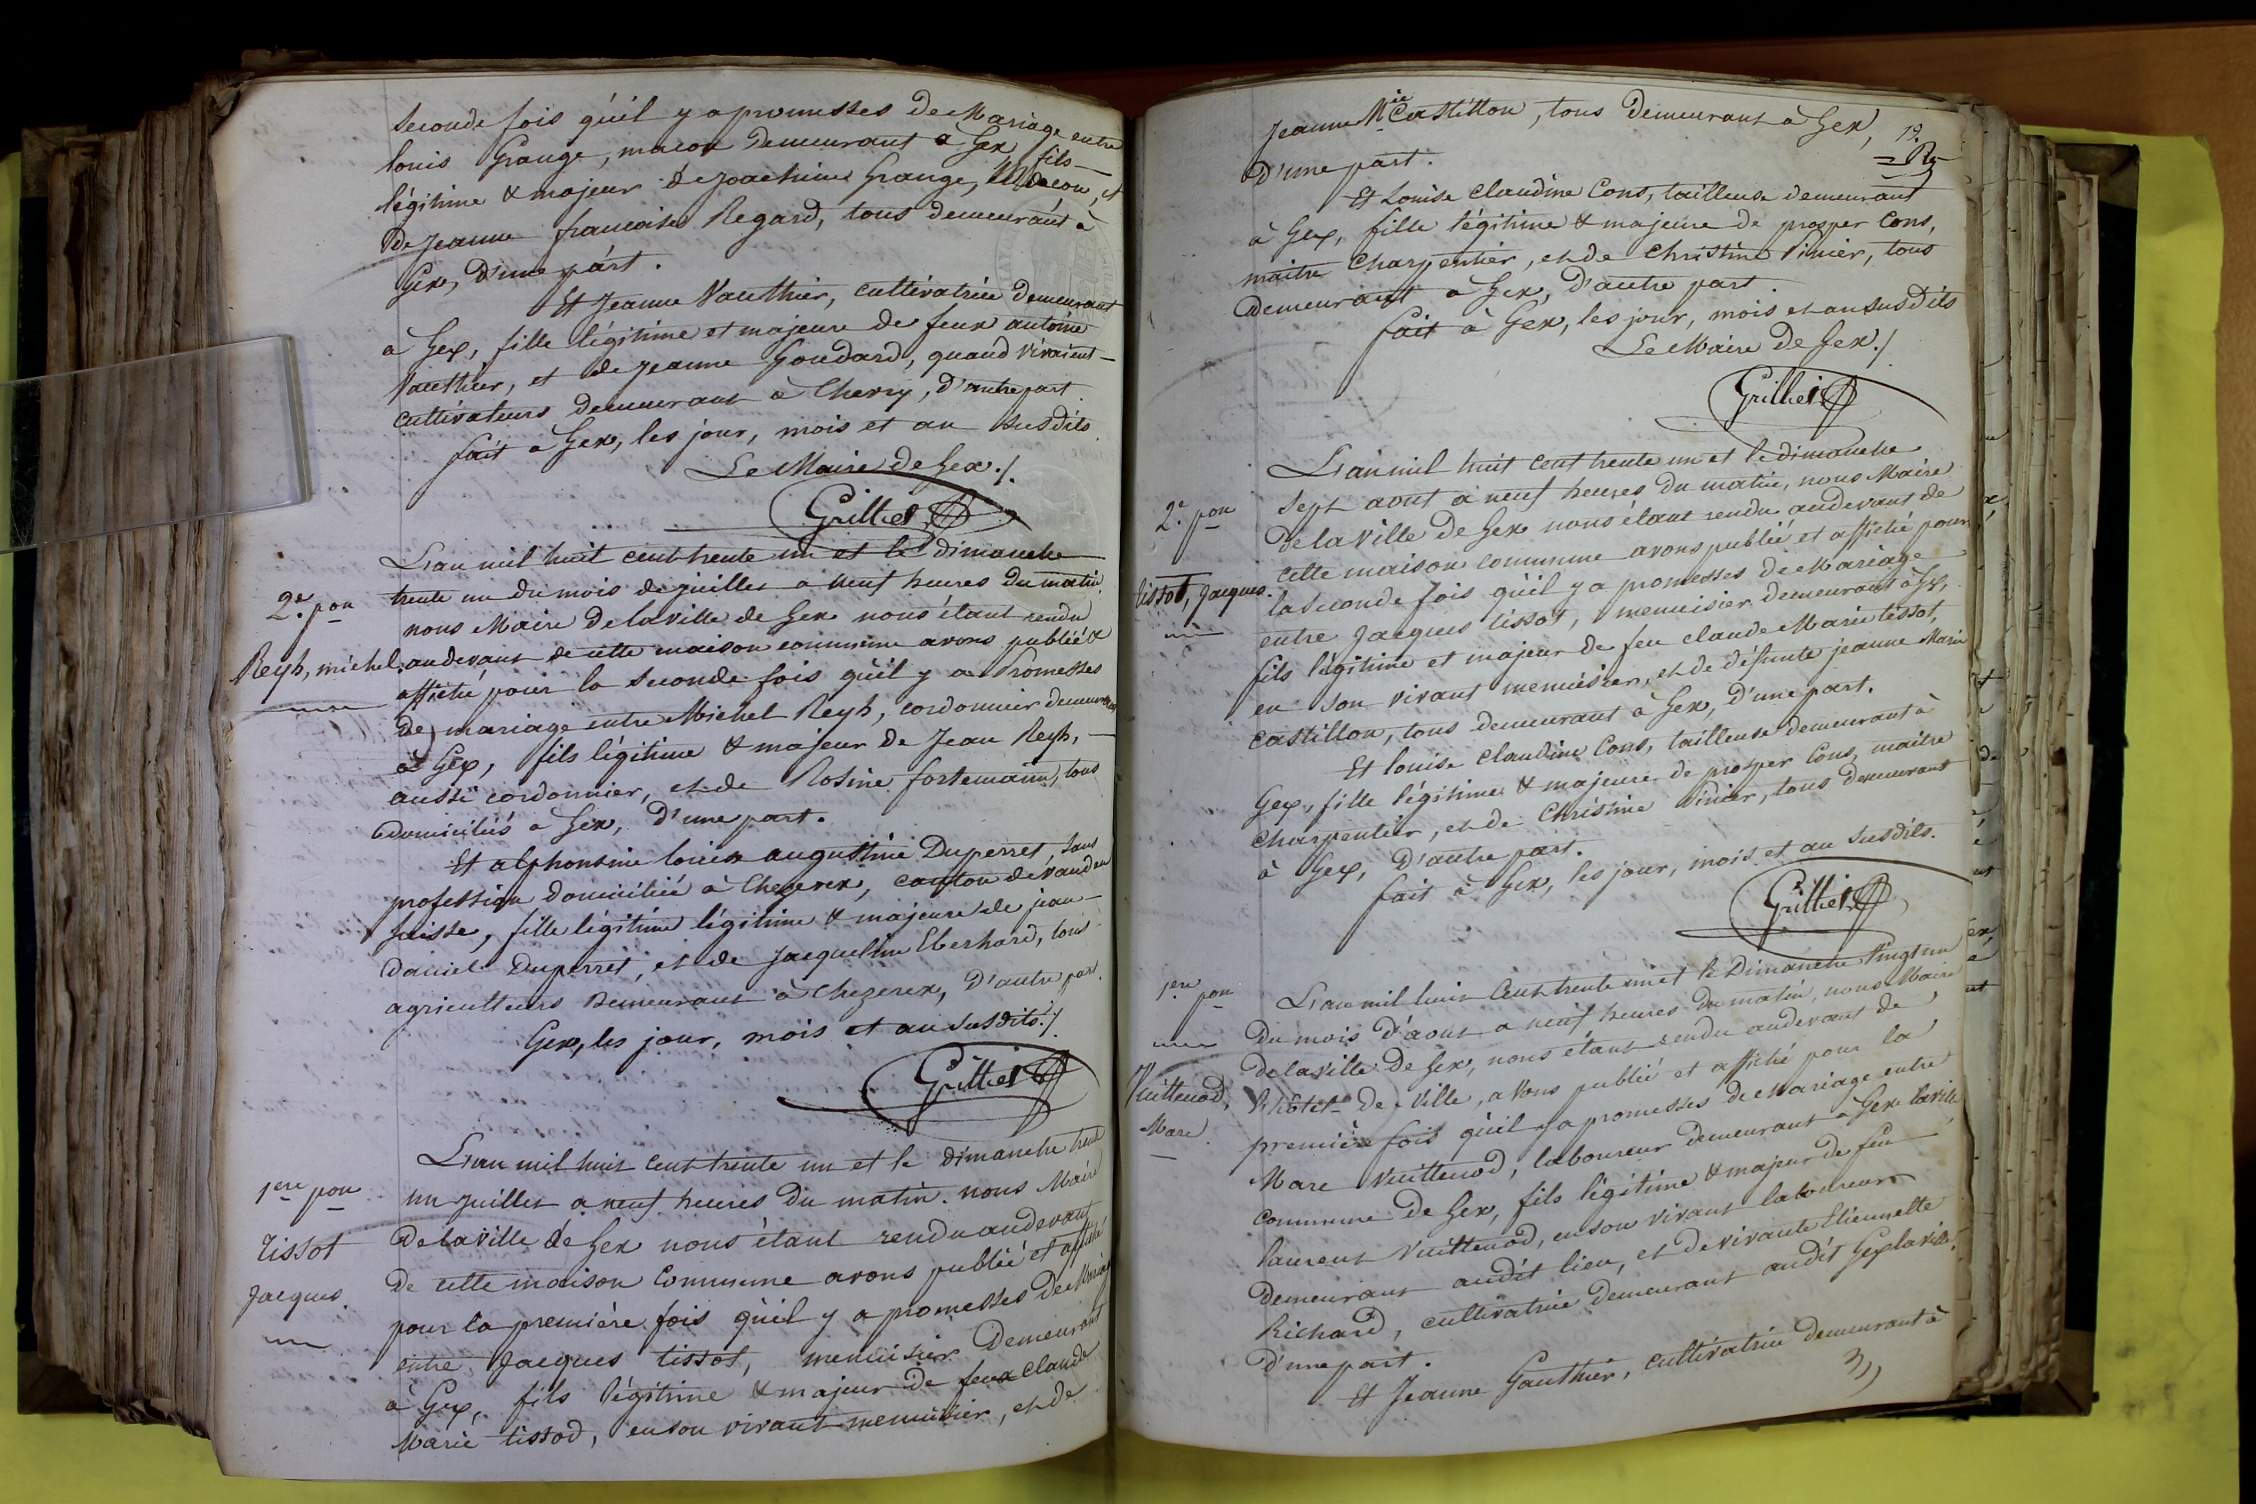 seconde fois qu'il y a promesses de Mariage entre
louis Grange, macon demeurant a Gex fils
légitime & majeur de joachim Grange, Macon, et
de Jeanne francoise Regard, tous demeurant à
Gex, d'une part.
Et Jeanne Vauthier, cultivatrice demeurant
à Gex, fille légitime et majeure de feux antoine
Vauthier, et de Jeanne Goudard, quand vivaient
cultivateurs demeurant à Chevry, d'autre part.
fait à Gex, les jour, mois et an susdits.
Le Maire de Gex./.
Grillet
L'an mil huit cent trente un et le dimanche
2e. pon
trente un du mois de juillet a neuf heures du matin
nous Maire de la ville de Gex nous étant rendu
Reyh, michel
au devant de cette maison commune avons publié &
affiché pour la seconde fois qu'il y a Promesses
de mariage entre Michel Reyh, cordonnier demeurant
à Gex, fils légitime & majeur de Jean Reyh,
aussi cordonnier, et de Rosine fortemain, tous
domiciliés à Gex, d'une part.
Et alphonsine augustine Duperret, sans
profession domiciliée à Chezerex, canton de vaud en
suisse, fille légitime légitime & majeure de jean
daniel Duperret, et de Jacqueline Eberhard, tous
agriculteurs demeurant à Chezerex, d'autre part.
Gex, les jour, mois et an susdits./.
Grillet
L'an mil huit cent trente un et le dimanche trente
1ere pon
un juillet a neuf heures du matin. nous Maire
Tissot
de la ville de Gex nous étant rendu au devant
de cette maison Commune avons publié et affiché
Jacques.
pour la première fois qu'il y a promesses de Mariage
entre Jacques tissot, menuisier demeurant
à Gex, fils légitime & majeur de feux claude
Marie tissod, en son vivant menuisier, et de
Jeanne Mie Castillon, tous demeurant à Gex,
19.
d'une part.
Et Louise claudine Cons, tailleuse demeurant
à Gex, fille légitime & majeure de prosper Cons,
maitre Charpentier, et de Christine Vinier, tous
demeurant à Gex, d'autre part.
fait à Gex, les jour, mois et an susdits
Le Maire de Gex./.
Grillet
L'an mil huit cent trente un et le dimanche
2e. pon
sept aout à neuf heures du matin, nous Maire
de la ville de Gex nous étant rendu au devant de
cette maison commune avons publié et affiché pour
tissot, Jacques.
la seconde fois qu'il y a promesses de Mariage
entre Jacques tissot, menuisier demeurant à Gex,
fils légitime et majeur de feu claude Marie tissot,
en son vivant menuisier, et de défunte jeanne Marie
castillon, tous demeurant à Gex, d'une part.
Et louise claudine Cons, tailleuse demeurant à
Gex, fille légitime & majeure de prosper Cons, maitre
charpentier, et de Christine Vinier, tous demeurant
à Gex, d'autre part.
fait à Gex, les jour, mois et an susdits.
Grillet
1ere pon
L'an mil huit Cent trente un et le Dimanche Vingt un
du mois d'aout a neuf heures du matin, nous Maire
de la ville de Gex, nous étant rendu au devant de
Vuittenod,
l'hôtel de ville, avons publié et affiché pour la
Marc.
première fois qu'il y a promesses de Mariage entre
Marc Vuittenod, laboureur demeurant à Gex la ville
commune de Gex, fils légitime & majeur de feu
laurent Vuittenod, en son vivant laboureur
demeurant audit lieu, et de vivante Etiennette
Richard, cultivatrice demeurant audit Gex la ville,
d'une part.
Et Jeanne Gauthier, cultivatrice demeurant à